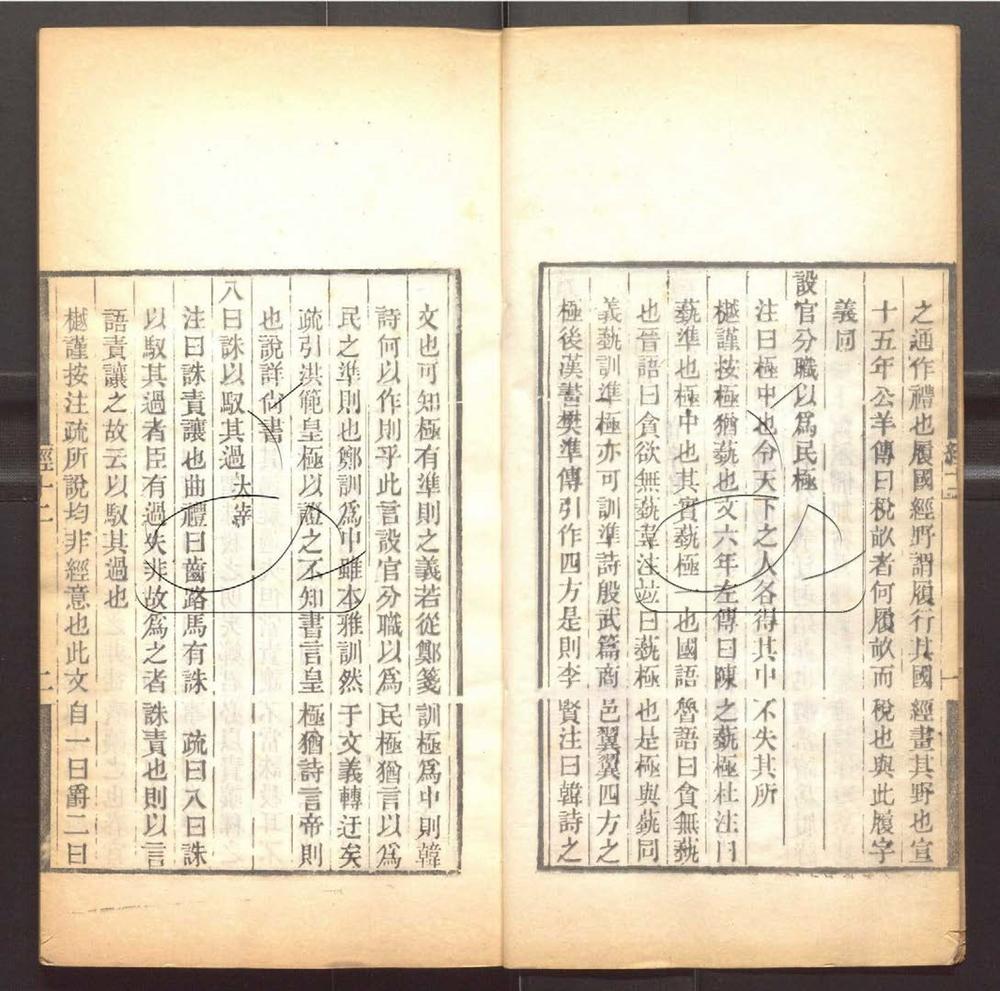 之通作禮也履國經野謂履行其國經畫其野也宣
十五年公羊傳曰稅畝者何履畝而稅也與此履字
義同
設官分職以爲民極
注曰極中也令天下之人各得其中不失其所
樾謹按極猶藝也文六年左傳曰陳之藝極杜注曰
藝準也極中也其實藝極一也國語魯語曰貪無藝
也晉語曰貪欲無藝韋注竝曰藝極也是極與藝同
義藝訓準極亦可訓準詩殷武篇商邑翼翼四方之
極後漢書樊準傳引作四方是則李賢注曰韓詩之
經十二
一
文也可知極有準則之義若從鄭箋訓極爲中則韓
詩何以作則乎此言設官分職以爲民極猶言以爲
民之準則也鄭訓爲中雖本雅訓然于文義轉迂矣
疏引洪範皇極以證之不知書言皇極猶詩言帝則
也說詳尙書
八曰誅以馭其過大宰
注曰誅責讓也曲禮曰齒路馬有誅 疏曰八曰誅
以馭其過者臣有過失非故爲之者誅責也則以言
語責讓之故云以馭其過也
樾謹按注疏所說均非經意也此文自一曰爵二曰
經十二
二